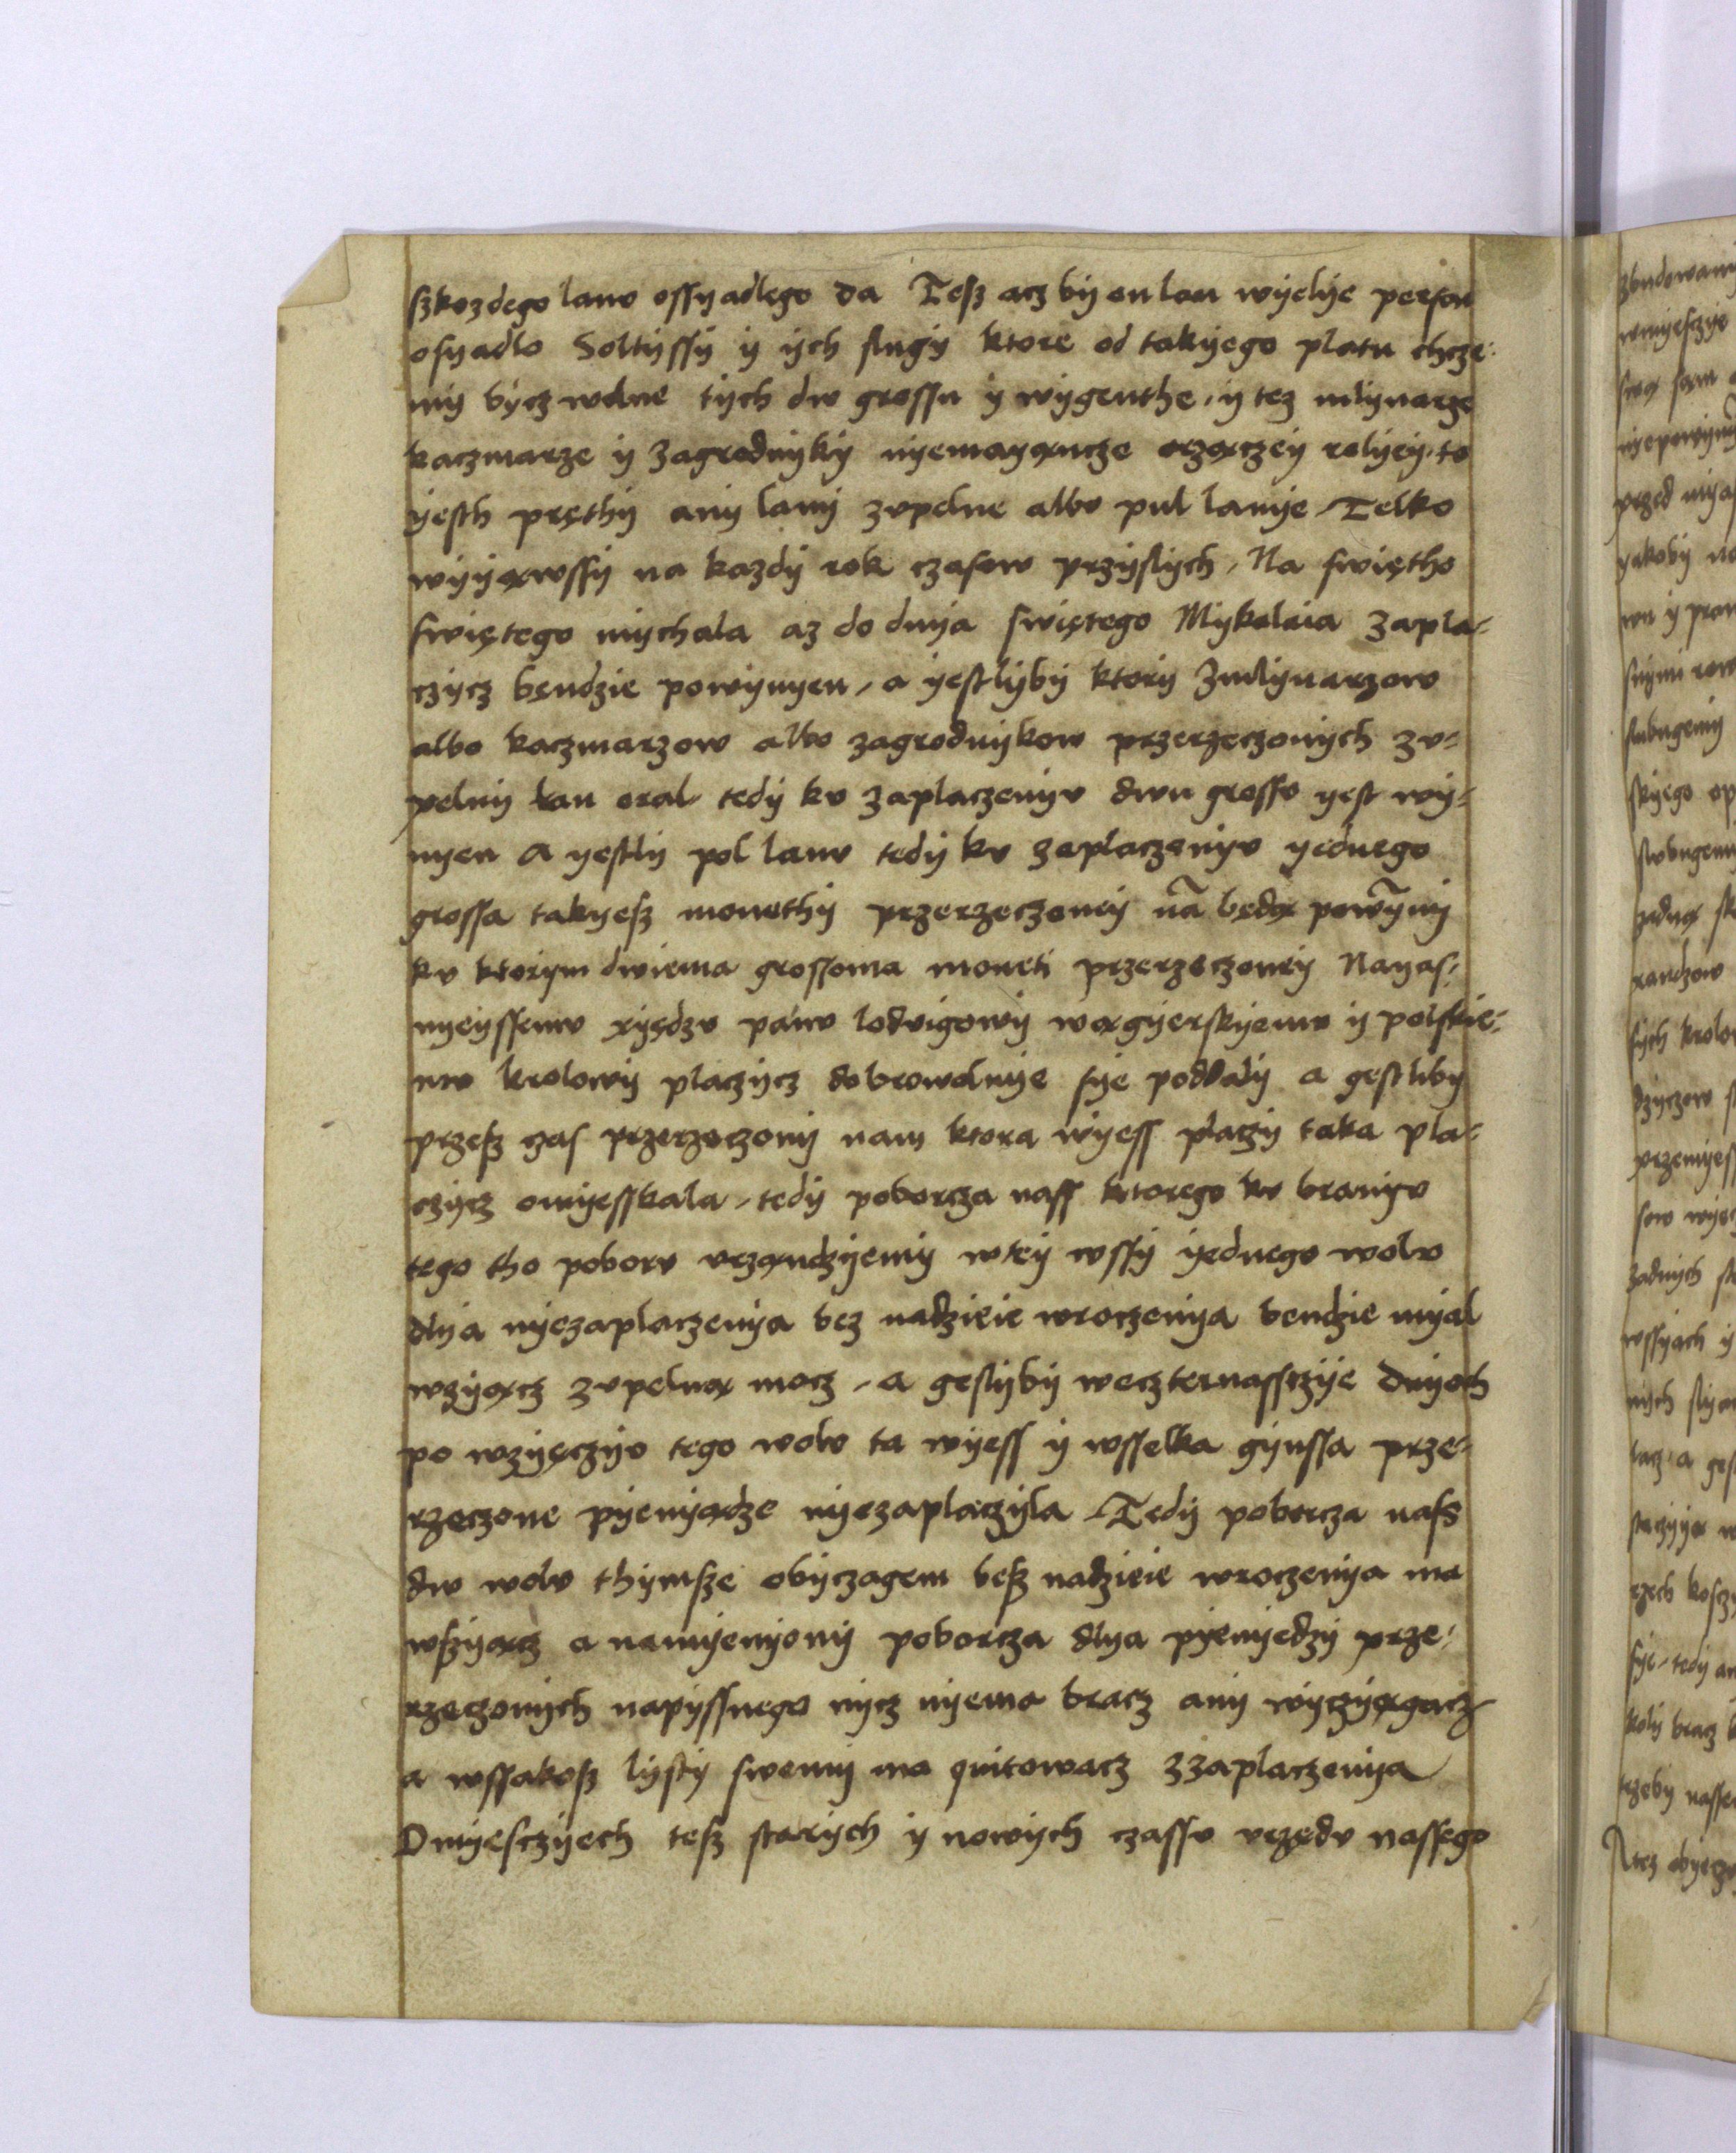 szkozdego lanv ossyadlego da Tesz acz by on lan wyelye person
osyadlo Soltyssy y ych slugy ktore od takyego platu chcze-
my bycz wolne tych dw grossu y wygenthe, y tez mlynarze
kaczmarze y zagrodnyky nyemayancze orzaczey rolyey, to
yesth prethy any lany zvpelne albo pul lanye, Telko
wyyawssy na kazdy rok czasow przyslych, Na swiętho
swiętego mychala az do dnya swiętego Mykolaia zapla-
czycz bęndzie powynyen, a yestlyby ktory zmlynarzow
albo kaczmarzow albo zagrodnykow przerzeczonych zv-
pelny lan oral tedy kv zaplaczenyv dwu grosso yest wy-
nyen a yestly pol lanv tedy kv zaplaczenyv yednego
grossa takyesz monethy przerzeczoney na będą powyny
kv ktorym dwiema grossoma moneti przerzeczoney Nayas-
nyeyssemv xyędzv panv lodvigowy wągyerskyemv y polskie-
mv krolowy placzycz dobrowolnye sye poddaly a gestliby
przesz czas przerzeczony nam ktora wyess placzy taka pla-
czycz omyesskala, tedy poborcza nass ktorego kv branyv
tego tho poborv vrzandzyemy wtey wssy yednego wolv
dlya nyezaplaczenya bez nadzieie wroczenya bendzie myal
wzyącz zvpelną mocz, a geslyby weczternassczye dnyoch
po wzyęczyv tego wolv ta wyess y wsselka gynssa prze-
rzeczone pyenyądze nyezaplaczyla, Tedy poborcza nass
dw wolv thymsze obyczagem besz nadzieie wroczenya ma
wszyącz a namyenyony poborcza dlya pyenyedzy prze-
rzeczonych napyssnego nycz nyema bracz any wyczyągacz
a wssakosz lysty swemy ma quitowacz zzaplaczenya
O myesczyech tesz starych y nowych czassv vrzędv nassego